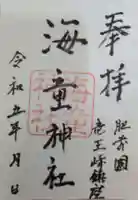 奉拝
肥前國
竜王崎鎮座
海童神社
令和五年月日